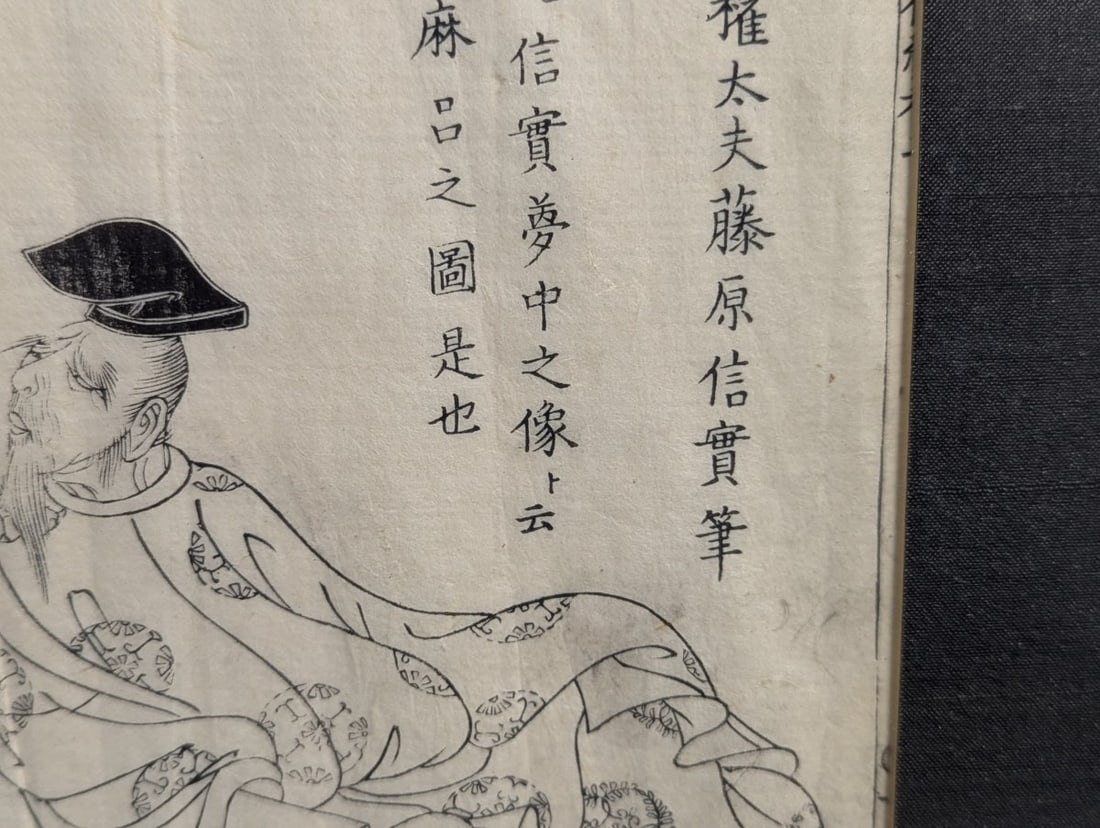 権太夫藤原信實筆
信實夢中之像ト云
麻呂之圖是也